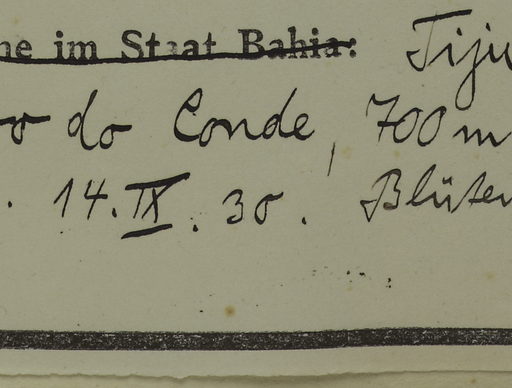 ne im Staat Bahia: Tiju
o do Conde, 700 m
. 14. IX. 30. Blüten